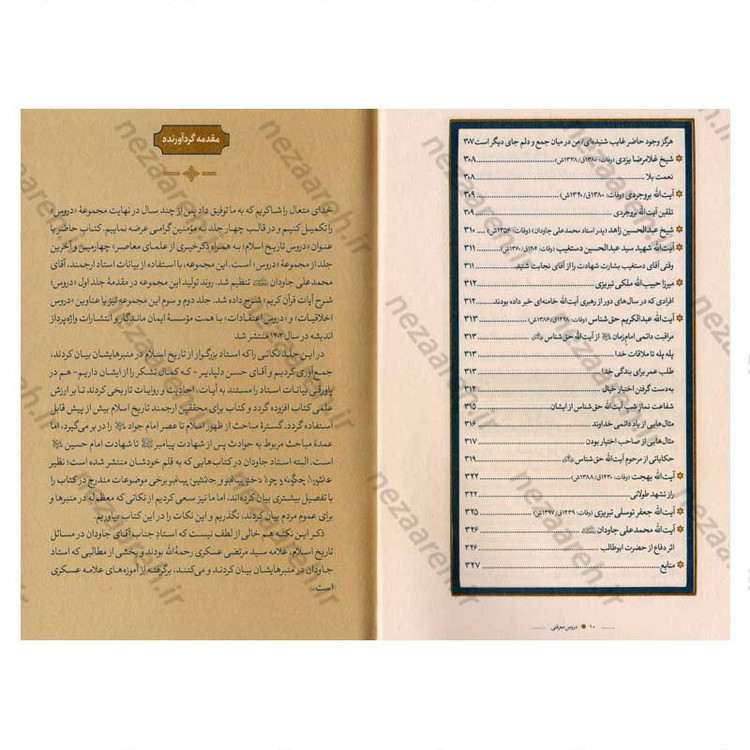 هرگز وجود حاضر غایب شنیده‌ای/ من در میان جمع و دلم جای دیگر است ۳۰۷
شیخ غلامرضا یزدی (وفات: ۱۳۸۰ق/۱۳۳۸ش) ۳۰۸
نعمت بلا ۳۰۸
آیت‌الله بروجردی (وفات: ۱۳۸۰ق/۱۳۴۰ش) ۳۰۹
تلقین آیت‌الله بروجردی ۳۰۹
شیخ عبدالحسین زاهد (پدر استاد محمدعلی جاودان) (وفات: ۱۳۵۶ش) ۳۱۰
آیت‌الله شهید سید عبدالحسین دستغیب (وفات: ۱۴۰۲ق/۱۳۶۰ش) ۳۱۱
وقتی آقای دستغیب بشارت شهادت را از آقای نجابت شنید ۳۱۱
میرزا حبیب‌الله ملکی تبریزی ۳۱۲
افرادی که در سال‌های دور از رهبری آیت‌الله خامنه‌ای خبر داده بودند ۳۱۲
آیت‌الله عبدالکریم حق‌شناس (وفات: ۱۴۲۸ق/۱۳۸۶ش) ۳۱۳
مراقبت دائمی امام زمان از آیت‌الله حق‌شناس ۳۱۳
پله پله تا ملاقات خدا ۳۱۳
طلب عمر برای بندگی خدا ۳۱۳
به‌دست گرفتن اختیار خیال ۳۱۴
شفاعت نماز شب آیت‌الله حق‌شناس از ایشان ۳۱۵
مثال‌هایی از یاد دائمی خداوند ۳۱۶
مثال‌هایی از صاحب اختیار بودن ۳۱۷
حکایاتی از مرحوم آیت‌الله حق‌شناس ۳۱۹
آیت‌الله بهجت (وفات: ۱۴۳۰ق/۱۳۸۸ش) ۳۲۲
راز تشهد طولانی ۳۲۲
آیت‌الله جعفر توسلی تبریزی (وفات: ۱۴۳۹ق/۱۳۹۷ش) ۳۲۵
آیت‌الله محمدعلی جاودان ۳۲۶
اثر دفاع از حضرت ابوطالب ۳۲۶
منابع ۳۲۷
۱۰ دروس معرفتی
مقدمه گردآورنده
خدای متعال را شاکریم که به ما توفیق داد پس از چند سال در نهایت مجموعهٔ «دروس»
را تکمیل کنیم و در قالب چهار جلد به مؤمنین گرامی عرضه نماییم. کتاب حاضر با
عنوان «دروس تاریخ اسلام؛ به همراه ذکر خیری از علمای معاصر» چهارمین و آخرین
جلد از مجموعهٔ «دروس» است. این مجموعه، با استفاده از بیانات استاد ارجمند، آقای
محمدعلی جاودان تنظیم شد. روند تولید این مجموعه در مقدمهٔ جلد اول «دروس؛
شرح آیات قرآن کریم» شرح داده شد. جلد دوم و سوم این مجموعه نیز با عناوین «دروس
اخلاقیات» و «دروس اعتقادات» با همت مؤسسهٔ ایمان ماندگار و انتشارات واژه‌پرداز
اندیشه در سال ۱۴۰۲ منتشر شد
در این جلد نکاتی را که استاد بزرگوار از تاریخ اسلام در منبرهایشان بیان کردند،
جمع‌آوری کردیم و آقای حسن دلپذیر ـ که کمال تشکر را از ایشان داریم ـ هم در
پاورقی بیانات استاد را مستند به آیات، احادیث و روایات تاریخی کردند تا بر ارزش
علمی کتاب افزوده گردد و کتاب برای محققین ارجمند تاریخ اسلام بیش از پیش قابل
استفاده گردد. گسترهٔ مباحث از ظهور اسلام تا عصر امام جواد را در بر می‌گیرد، اما
عمدهٔ مباحث مربوط به حوادث پس از شهادت پیامبر تا شهادت امام حسین
است. البته استاد جاودان در کتاب‌هایی که به قلم خودشان منتشر شده است؛ نظیر
برخی موضوعات مندرج در کتاب را
با تفصیل بیشتری بیان کرده‌اند، اما ما نیز سعی کردیم از نکاتی که معظم‌له در منبرها و
برای عموم مردم بیان کردند، نگذریم و این نکات را در این کتاب بیاوریم.
ذکر این نکته هم خالی از لطف نیست که استادِ جناب آقای جاودان در مسائل
تاریخ اسلام، علامه سید مرتضی عسکری رحمةالله بودند و بخشی از مطالبی که استاد
جاودان در منبرهایشان بیان کردند و می‌کنند، برگرفته از آموزه‌های علامه عسکری
است.
nezaareh.ir